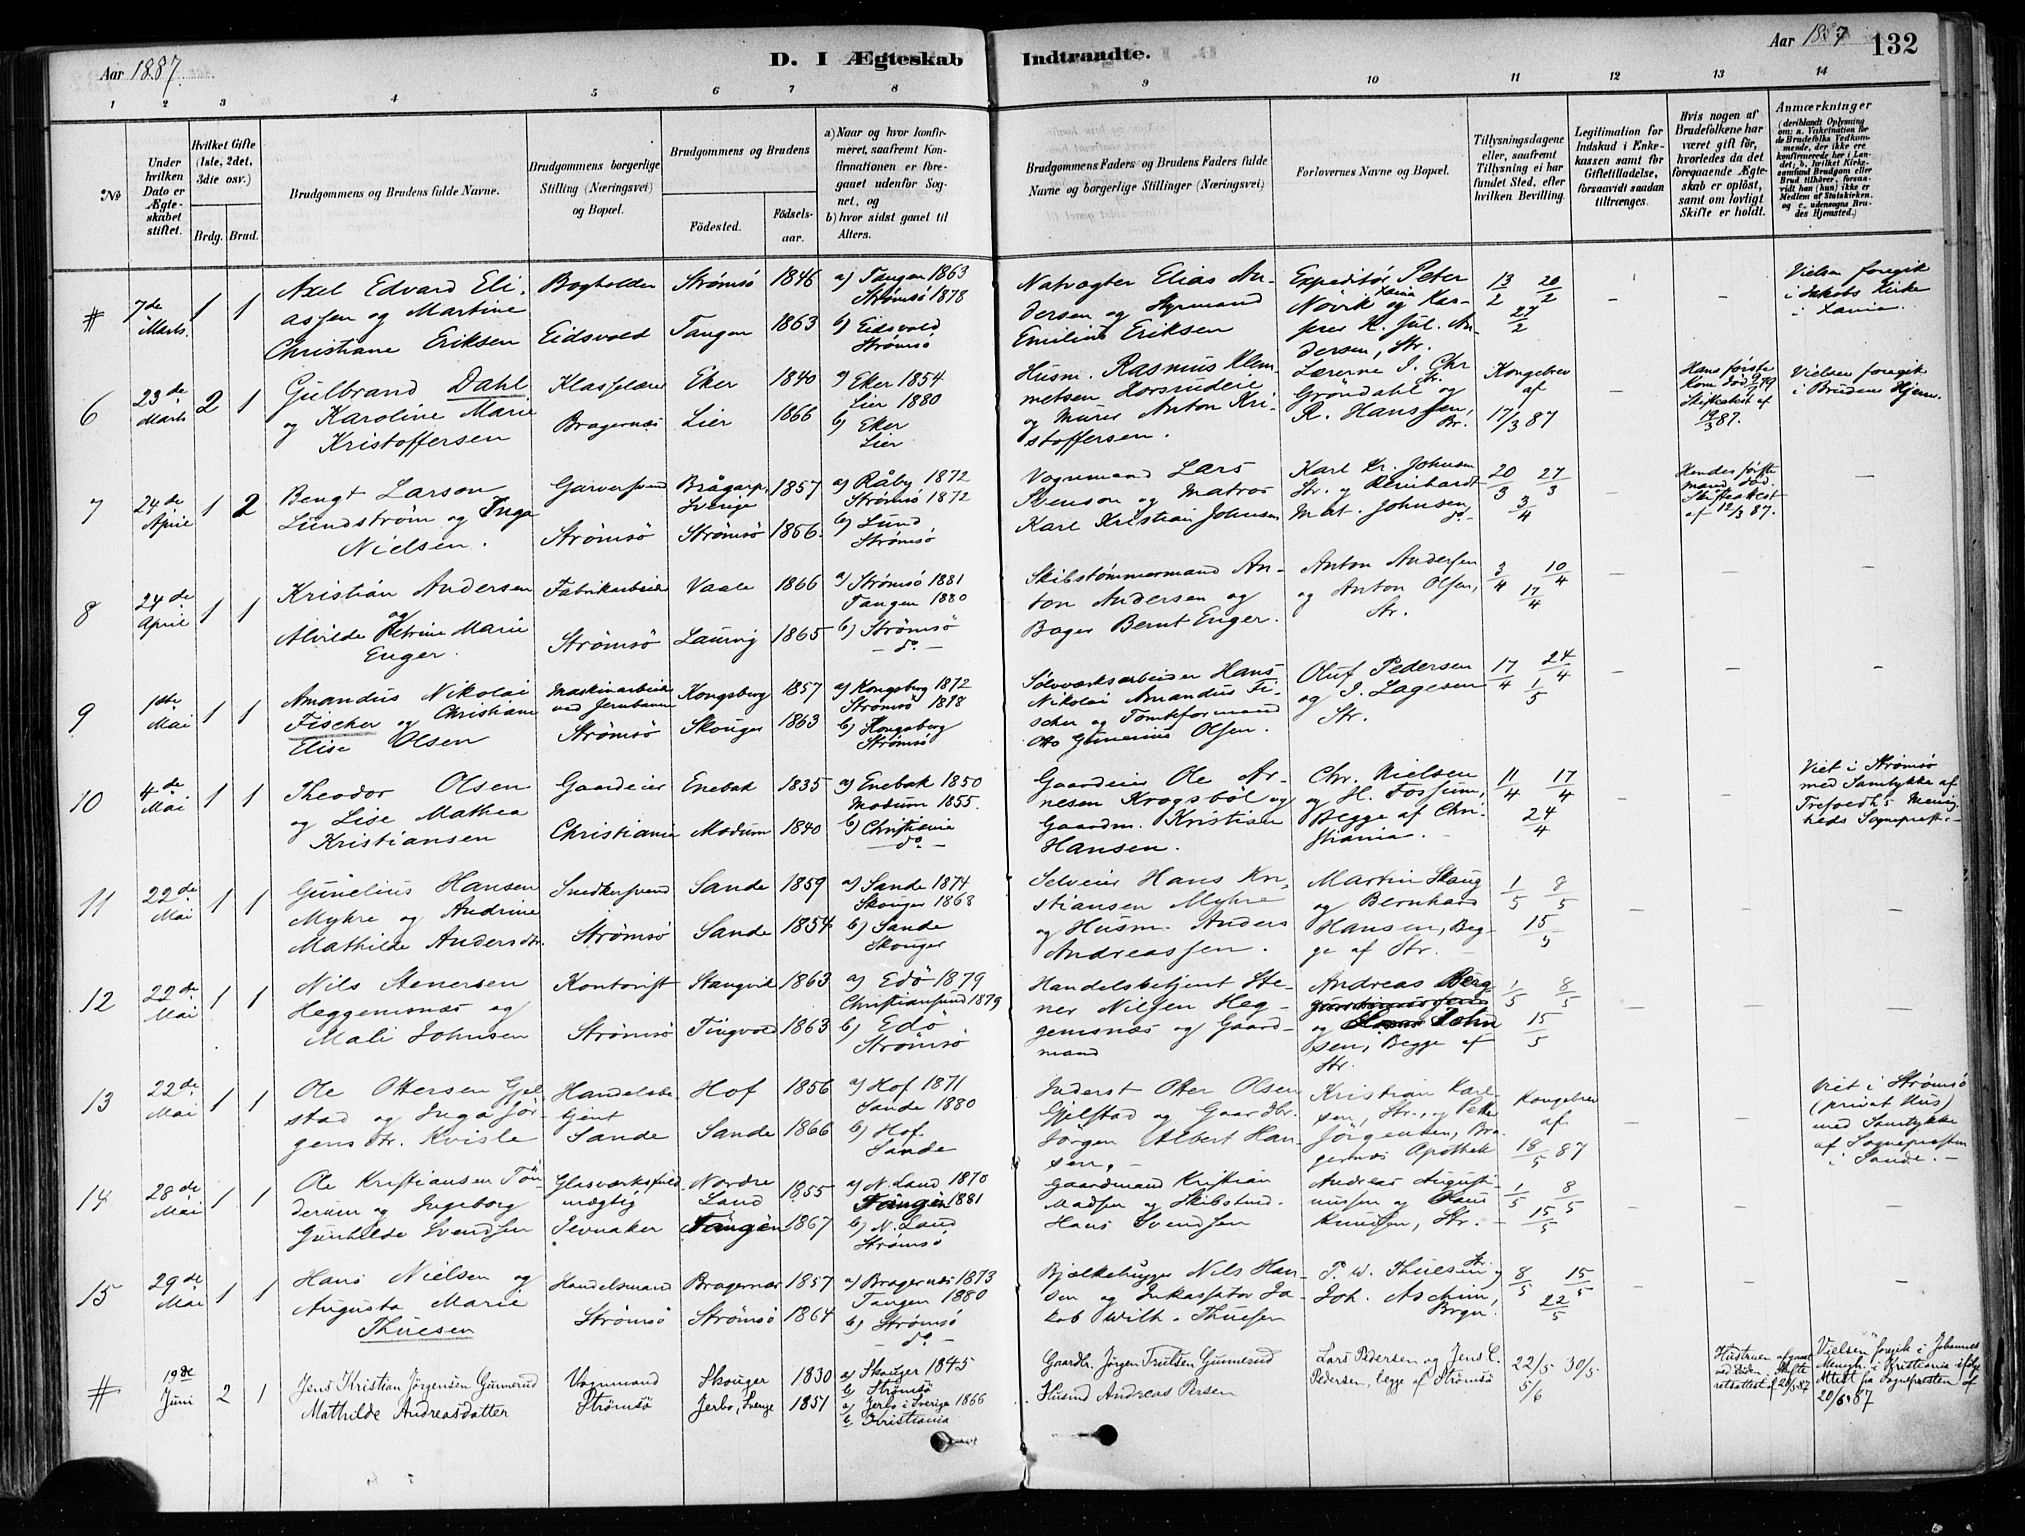 Aar 1887.
D. I Ægteskab Indtraadte.
Aar 1887
132
1 2 3 4 5 6 7 8 9 10 11 12 13 14
No
Under hvilken Dato er Ægteskabet stiftet.
Hvilket Gifte (1ste, 2det, 3die osv.)
Brdg. Brud.
Brudgommens og Brudens fulde Navne.
Brudgommens borgerlige Stilling (Næringsvei) og Bopæl.
Brudgommens og Brudens
Fødested.
Fødsels-aar.
a) Naar og hvor konfirmeret, saafremt Konfirmationen er foregaaet udenfor Sognet, og
b) hvor sidst gaaet til Alters.
Brudgommens Faders og Brudens Faders fulde Navne og borgerlige Stillinger (Næringsvei)
Forlovernes Navne og Bopæl.
Tillysningsdagene eller, saafremt Tillysning ei har fundet Sted, efter hvilken Bevilling.
Legitimation for Indskud i Enkekassen samt for Giftetilladelse, forsaavidt saadan tiltrænges.
Hvis nogen af Brudefolkene har været gift før, hvorledes da det foregaaende Ægteskab er opløst, samt om lovligt Skifte er holdt.
Anmærkninger
# 7de Marts. 1 1
Axel Edvard Eli-
assen og Martine
Christiane Eriksen
Bogholder
Eidsvold
Strømsö 1846
Tangen 1863
a) Tangen 1863
Strømsö 1878
b) Eidsvold
Strømsö
Natvagter Elias An-
dersen og Styrmand
Emilius Eriksen
Expeditör Peter
Növik Xania og Kas-
serer K. Jul. An-
dersen, Str.
13/2 20/2
27/2
Vielsen foregik
i Jakobs Kirke
i Xania.
6 23de Marts 2 1
Gulbrand Dahl
og Karoline Marie
Kristoffersen
Klasselærer
Bragernæs
Eker 1840
Lier 1866
a) Eker 1854
Lier 1880
b) Eker
Lier
Husm. Rasmus Klem-
metsen Horsrudere
og Murer Anton Kri-
stoffersen.
Lærerne J. Chr
Gröndahl Str. og
R. Hanssen,
Br.
Kongebrev
af
17/3 87
Hans förste
Skifteattest af
19/3 87.
Vielsen foregik
i Brudens Hjem.
7 24de April 1 2
Bengt Larson
Lundström og Inga
Nielsen.
Garversvend
Strömsö
Brågarp, Sverige 1857
Strömsö 1856.
a) Råby 1872
Strömsö 1872
b) Lund
Strömsö
Vognmand Lars
Svenson og Matros
Karl Kristian Johnsen
Karl Kr. Johnsen
Str. og Reinhardt
Mat. Johnsen
do
20/3 27/3
3/4
Hendes förste
mand död.
Skifteattest
af 12/3 87.
8 24de April 1 1
Kristian Andersen
og
Alvilde Petrine Marie
Enger.
Fabrikarbeider
Strömsö
Vaale 1866
Laurvig 1865
a) Strömsö 1881
Tangen 1880
b) Strömsö
do
Skibstømmermand An-
ton Andersen og
Bager Bernt Enger.
Anton Andersen
og Anton Olsen,
Str.
3/4 10/4
17/4
9 1ste Mai 1 1
Amandus Nikolai
Fischer og Christiane
Elise Olsen
Maskinarbeider
ved Jernbanen
Strömsö
Kongsberg 1857
Skouger 1863
a) Kongsberg 1872
Strömsö 1878
b) Kongsberg
Strömsö
Sølvværksarbeider Hans
Nikolai Amandus Fi-
scher og Tomteformand
Otto Gunerius Olsen.
Oluf Pedersen
og J. Lagesen
Str.
17/4 24/4
1/5
10 4de Mai 1 1
Theodor Olsen
og Lise Mathea
Kristiansen
Gaardeier
Christiania
Enebak 1835
Modum 1840
a) Enebak 1850
Modum 1855.
b) Christiania
do
Gaardeier Ole Ar-
nesen Krogsböl og
Gaardm. Kristian
Hansen.
Chr. Nielsen
og H. Fossum,
Begge af Chri-
stiania.
11/4 17/4
24/4
Viet i Strömsö
med Samtykke af
Trefoedh's Menig-
heds Sognepræst.
11 22de Mai 1 1
Gunelius Hansen
Myhre og Andrine
Mathilde Andersdtr.
Snedkersvend
Strömsö
Sande 1859
Sande 1854
a) Sande 1874
Skouger 1868
b) Sande
Skouger
Selveier Hans Kri-
stiansen Myhre
og Husm. Anders
Andreassen.
Martin Skaug
og Bernhard
Hansen, Beg-
ge af Str.
1/5 8/5
15/5
12 22de Mai 1 1
Nils Stenersen
Heggemsnæs og
Mali Johnsen
Kontorist
Strömsö
Stangvik 1863
Tingvold 1863
a) Edö 1879
Christiansund 1879
b) Edö
Strömsö
Handelsbetjent Ste-
ner Nilsen Heg-
gemsnæs og Gaard-
mand
Andreas Berg
og John
sen, Begge af
Str.
1/5 8/5
15/5
13 22de Mai 1 1
Ole Ottersen Gjel-
stad og Inga Jör-
gensdtr. Kvisle
Handelsbe-
tjent
Sande
Hof 1856
Sande 1866
a) Hof 1871
Sande 1880
b) Hof
Sande
Inderst Otter Olsen
Gjelstad og Gaardbr.
Jörgen Albert Han-
sen.
Kristian Karl-
sen, Str., og Peter
Jörgensen, Bra-
gernæs Apothek
Kongebrev
af
18/5 87
Viet i Strömsö
(privat Hus)
med Samtykke
af Sognepræsten
i Sande.
14 28de Mai 1 1
Ole Kristiansen Tön-
derum og Ingeborg
Gunhilde Svendsen
Glasværksfuld-
mægtig
Jevnaker
Nordre Land 1855
Tangen 1867
a) N. Land 1870
Tangen 1881
b) N. Land
Strömsö
Gaardmand Kristian
Madsen og Skibstmd.
Hans Svendsen
Andreas August-
inussen og Claus
Knudsen, Str.
1/5 8/5
15/5
15 29de Mai 1 1
Hans Nielsen og
Augusta Marie
Thuesen
Handelsmand
Strömsö
Bragernæs 1857
Strömsö 1864
a) Bragernæs 1873
Tangen 1880
b) Strömsö
do
Bjælkehugger Nils Han-
sen og Inkassator Ja-
kob Wilh. Thuesen
T. W. Thuesen Str. og
Joh. Aschim,
Brgn.
8/5 15/5
22/5
# 19de Juni 2 1
Jens Kristian Jørgensen Gunnerud
Mathilde Andreasdatter
Vognmand
Strømsö
Skouger 1830
Jerbo, Sverige 1851
a) Skouger 1845
b) Strømsö
a) Jerbo i Sverige 1866
b) Kristiania
Gaardbr. Jörgen Trulsen Gunnerud
Husmd Andreas Persen
Lars Pedersen og Jens C.
Pedersen, begge af Strömsö
22/5 30/5
5/6
Hustruen afgaaet
ved Döden
Vielsen foregik i Johannes
Menigh. i Kristiania ifølge
Attest fra Sognepræsten af
20/6 87